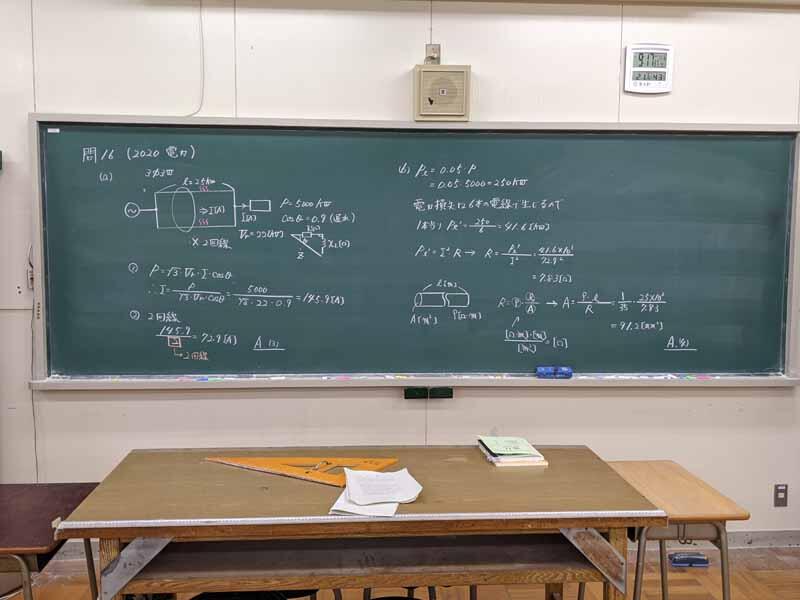 問16 (2020 電力)
(a) 3φ3W
l=25km
⇒I[A]
I[A]
×2回線
P=5000kW
cosθ=0.9(遅れ)
Vr=22[kV]
① P=√3・Vr・I・cosθ
∴I=P/(√3・Vr・cosθ)=5000/(√3・22・0.9)=145.9[A]
② 2回線
145.9/2=72.9[A]
→2回線
A.(3)
(b) Pl=0.05・P
=0.05・5000=250kW
電力損失は6本の電線で生じるので
1本当り Pl'=250/6=41.6[kW]
Pl'=I²R→ R=Pl'/I²=41.6×10³/72.9²
=7.83[Ω]
l[m]
A[m²]
ρ[Ω・m]
R=ρ・l/A → A=ρ・l/R=1/35・25×10³/7.83
[Ω・m]・[m]/[m²]=[Ω]
=91.2[mm²]
A.(4)